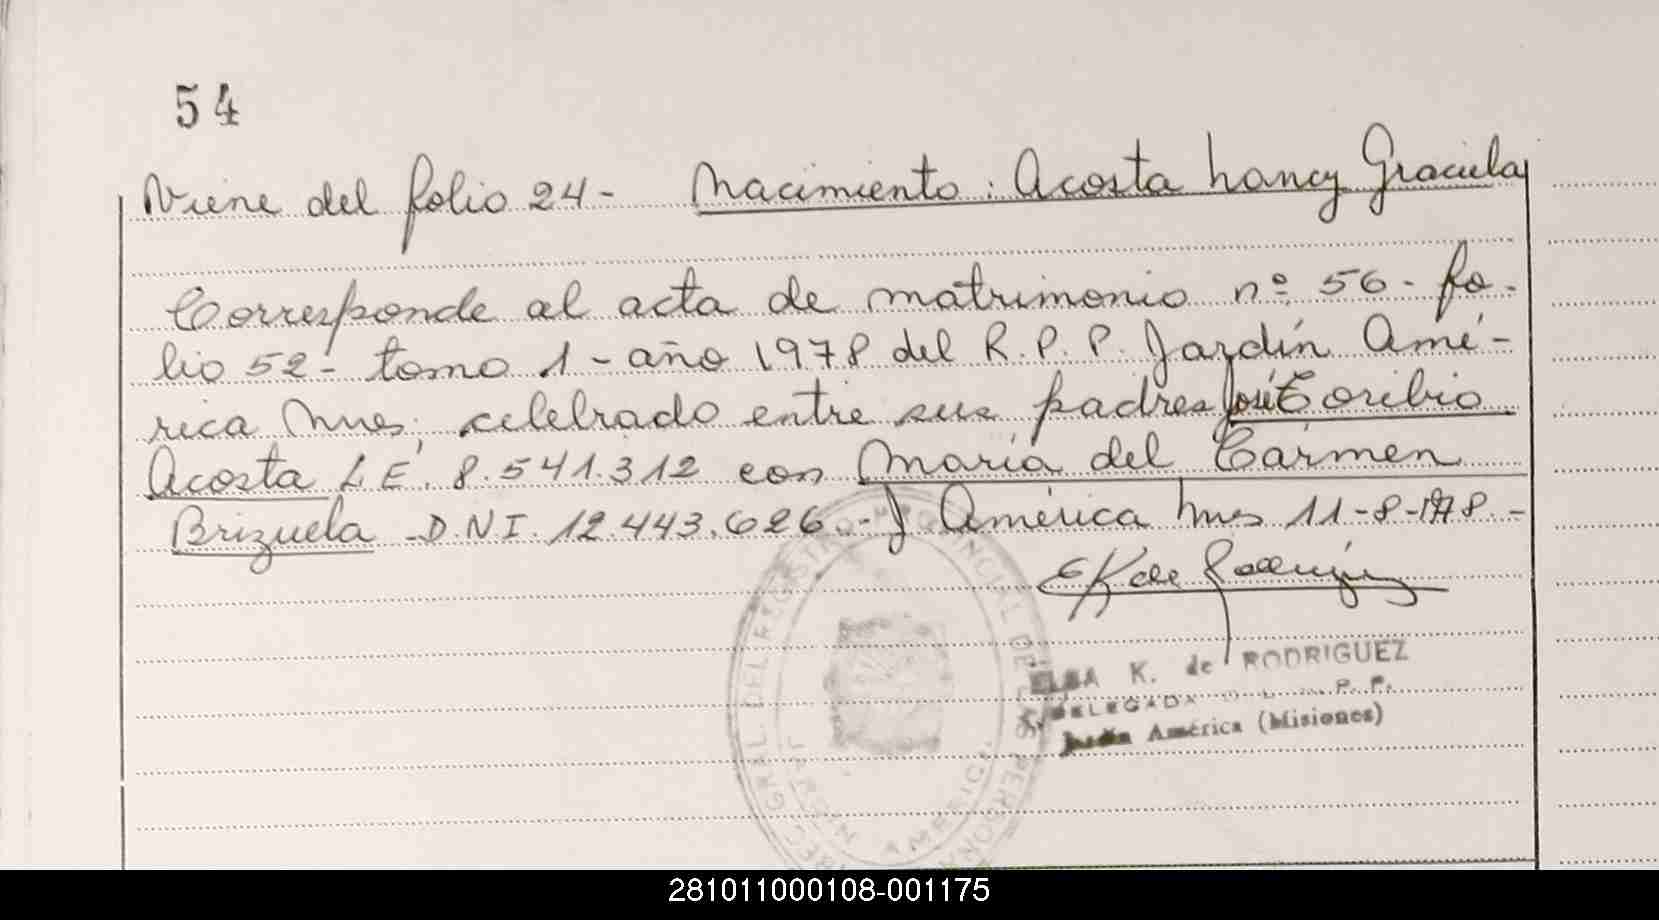 54
Viene del folio 24- Nacimiento: Acosta Nancy Graciela
Corresponde al acta de matrimonio nº 56- fo-
lio 52- tomo 1- año 1978 del R.P.P. Jardín Amé-
rica Mnes, celebrado entre sus padres José Toribio
Acosta L.E. 8.541.312 con María del Cármen
Brizuela D.N.I. 12.443.626.- J América Mnes 11-8-1978.-
EK de Rodriguez
ELSA K. de RODRIGUEZ
DELEGADA P. P.
Jardín América (Misiones)
GRAL. DEL REGISTRO PROVINCIAL DE
JARDIN AMERICA
281011000108-001175